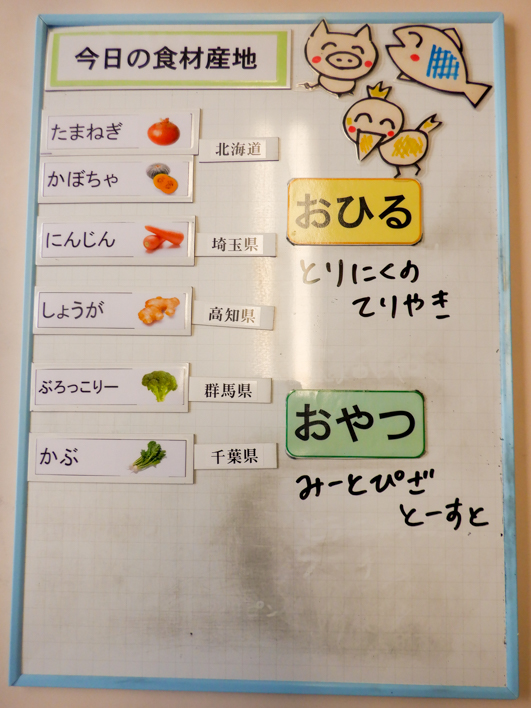 今日の食材産地
たまねぎ
かぼちゃ
北海道
にんじん
埼玉県
しょうが
高知県
ぶろっこりー
群馬県
かぶ
千葉県
おひる
とりにくの
てりやき
おやつ
みーとぴざ
とーすと